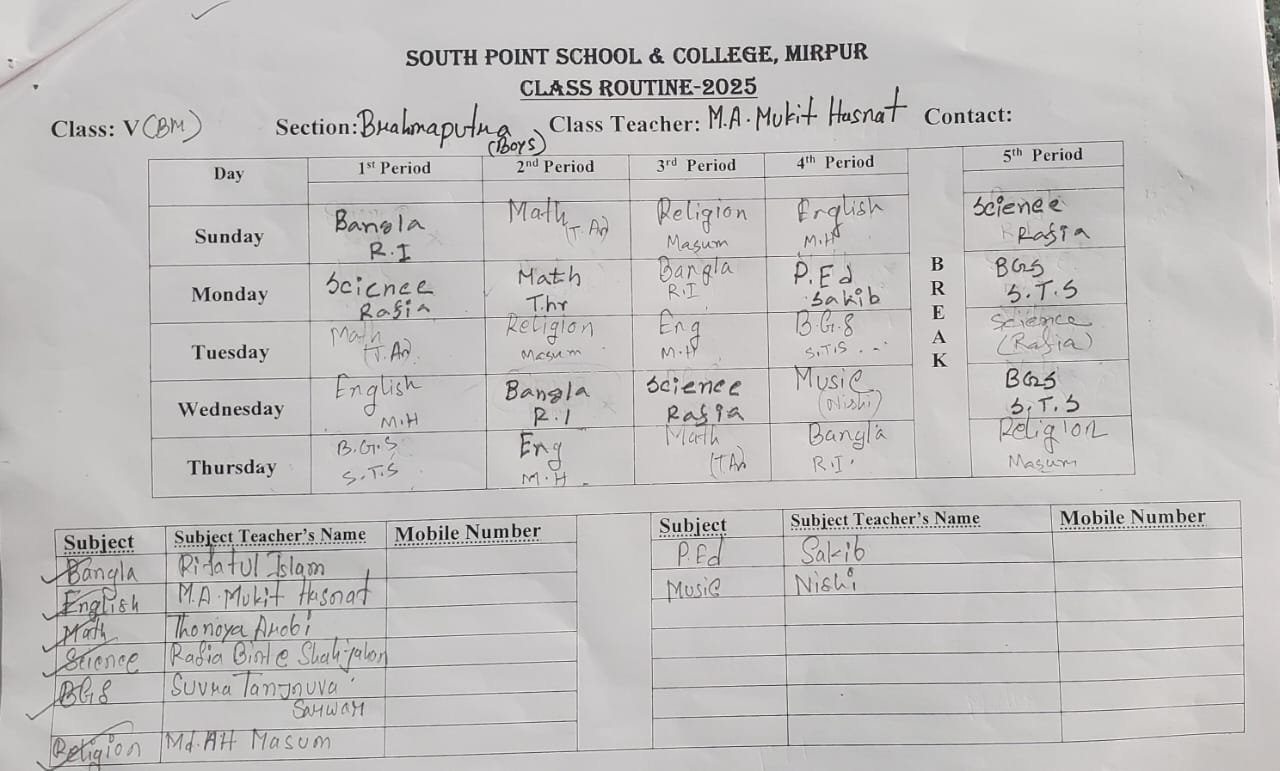 SOUTH POINT SCHOOL & COLLEGE, MIRPUR
CLASS ROUTINE-2025
Class: V (BM) Section: Brahmaputra (Boys) Class Teacher: M.A. Mukit Hasnat Contact:
Day 1st Period 2nd Period 3rd Period 4th Period BREAK 5th Period
Sunday Bangla R.I Math (T.A) Religion Masum English M.H Science Rafia
Monday Science Rafia Math Thr Bangla R.I P.Ed Sakib BGS S.T.S
Tuesday Math (T.A) Religion Masum Eng M.H B.G.S S.T.S Science (Rafia)
Wednesday English M.H Bangla R.I Science Rafia Music (Nishi) BGS S.T.S
Thursday B.G.S S.T.S Eng M.H Math (TA) Bangla R.I. Religion Masum
Subject Subject Teacher's Name Mobile Number
Bangla Rifatul Islam
English M.A. Mukit Hasnat
Math
Science Rafia Binte
BGS
Religion Masum
Subject Subject Teacher's Name Mobile Number
P.Ed Sakib
Music Nishi